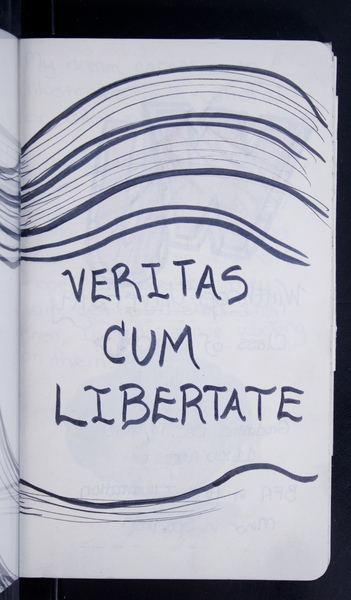 VERITAS
CUM
LIBERTATE